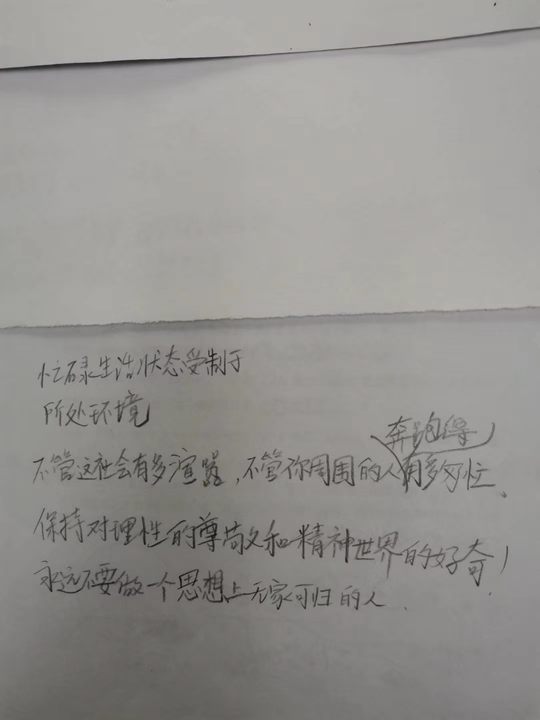 忙碌生活状态受制于
所处环境
不管这社会有多渲嚣,不管你周围的人奔跑得有多匆忙、
保持对理性的尊敬和精神世界的好奇!
永远不要做一个思想上无家可归的人.